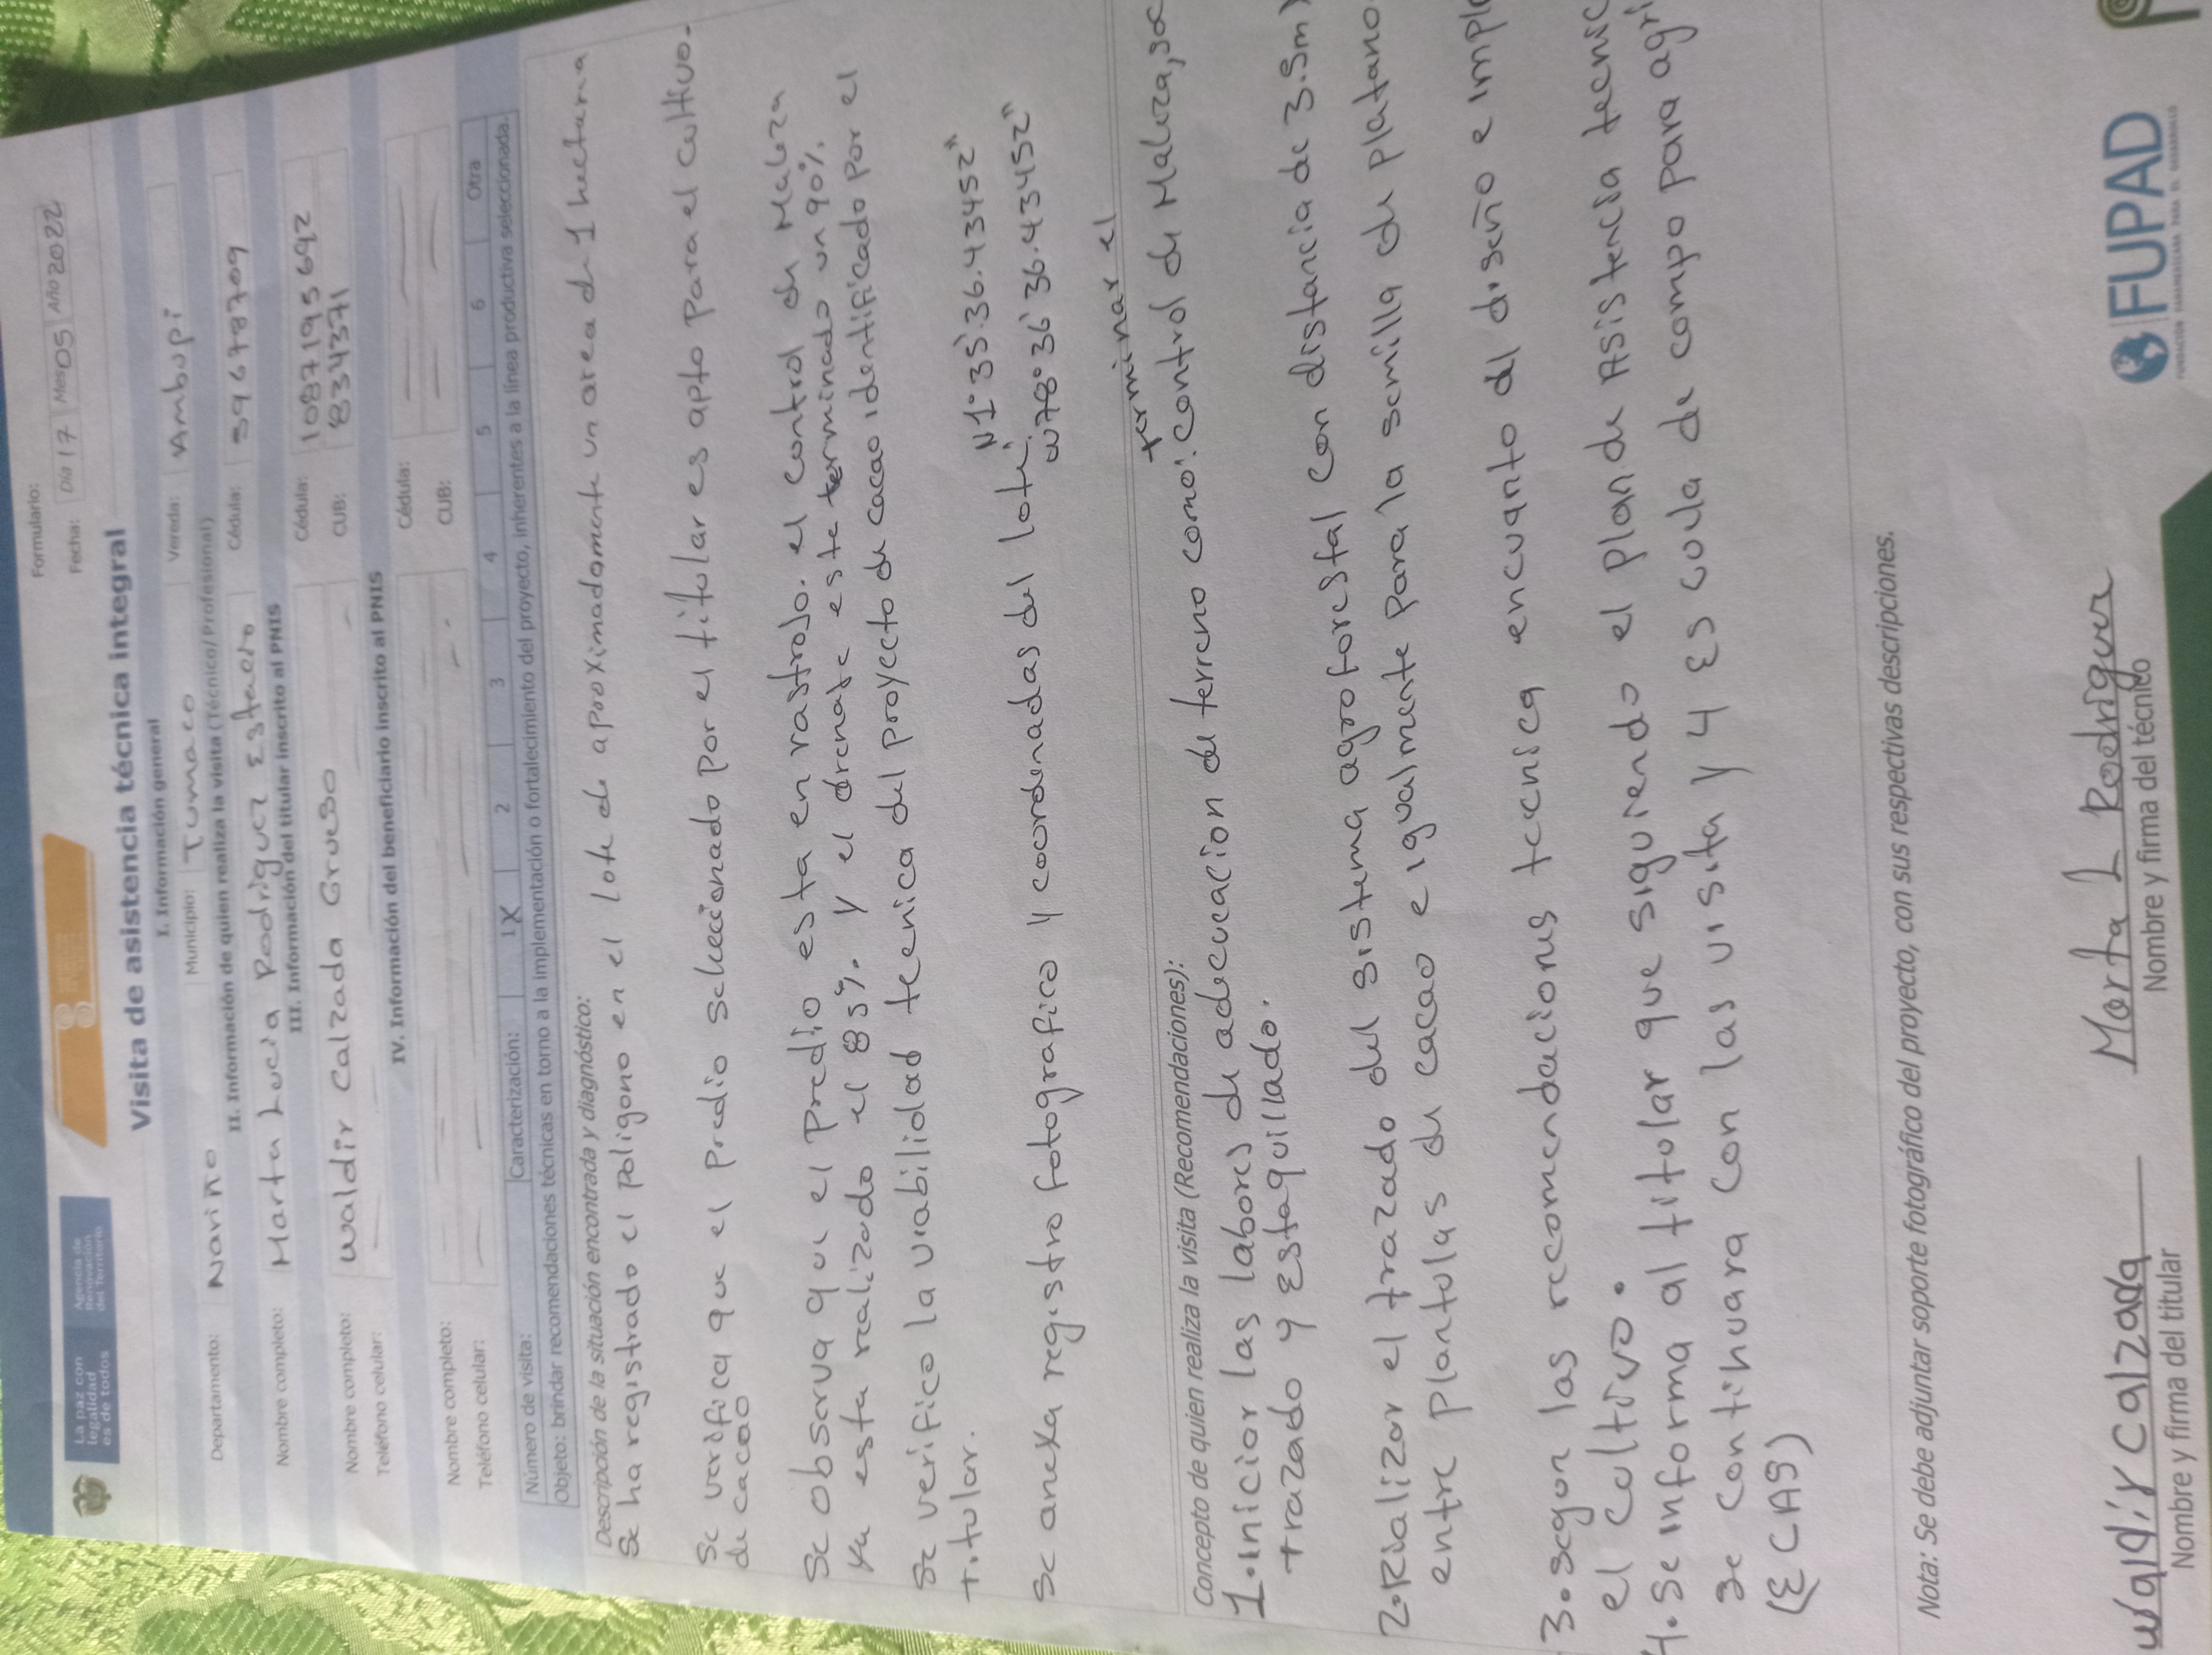 Formulario:
La paz con legalidad es de todos
Agencia de Renovación del Territorio
Fecha: Día 17 Mes 05 Año 2022
Visita de asistencia técnica integral
I. Información general
Departamento: Nariño Municipio: Tumaco Vereda: Ambupi
II. Información de quien realiza la visita (Técnico/Profesional)
Nombre completo: Marta Lucia Rodriguez Estacio Cédula: 59678709
III. Información del titular inscrito al PNIS
Nombre completo: Waldir Calzada Grueso Cédula: 1087195692
Teléfono celular: CUB: 834371
IV. Información del beneficiario inscrito al PNIS
Nombre completo: Cédula:
Teléfono celular: CUB:
Número de visita: Caracterización: 1 X 2 3 4 5 6 Otra
Objeto: brindar recomendaciones técnicas en torno a la implementación o fortalecimiento del proyecto, inherentes a la línea productiva seleccionada.
Descripción de la situación encontrada y diagnóstico:
Se ha registrado el poligono en el lote de aproximadamente un area de 1 hectaria
Se verifica que el predio seleccionado por el titular es apto para el cultivo.
de cacao
Se observa que el predio esta en rastrojo. el control de Maleza
ya esta realizado el 85%. y el drenaje este terminado un 90%.
Se verifico la viabilidad tecnica del proyecto de cacao identificado por el
titular.
N1°35'36.43452"
Se anexa registro fotografico y coordenadas del lote.
W78°36'36.43452"
Concepto de quien realiza la visita (Recomendaciones):
terminar el
1. Inicior las labores de adecuacion de terreno como: control de Maleza,
trazado y Estaquillado.
2. Rializar el trazado del sistema agroforestal con distancia de 3.5m
entre plantulas de cacao e igualmente para la semilla de platano
3. segun las recomendaciones tecnica encuanto del diseño e
el cultivo.
4. Se informa al titolar que siguiendo el plan de Asistencia
se contihuara con las visita y 4 Escula de campo para
(ECAS)
Nota: Se debe adjuntar soporte fotográfico del proyecto, con sus respectivas descripciones.
Waldir Calzada
Marta L Rodriguez
Nombre y firma del titular
Nombre y firma del técnico
FUPAD